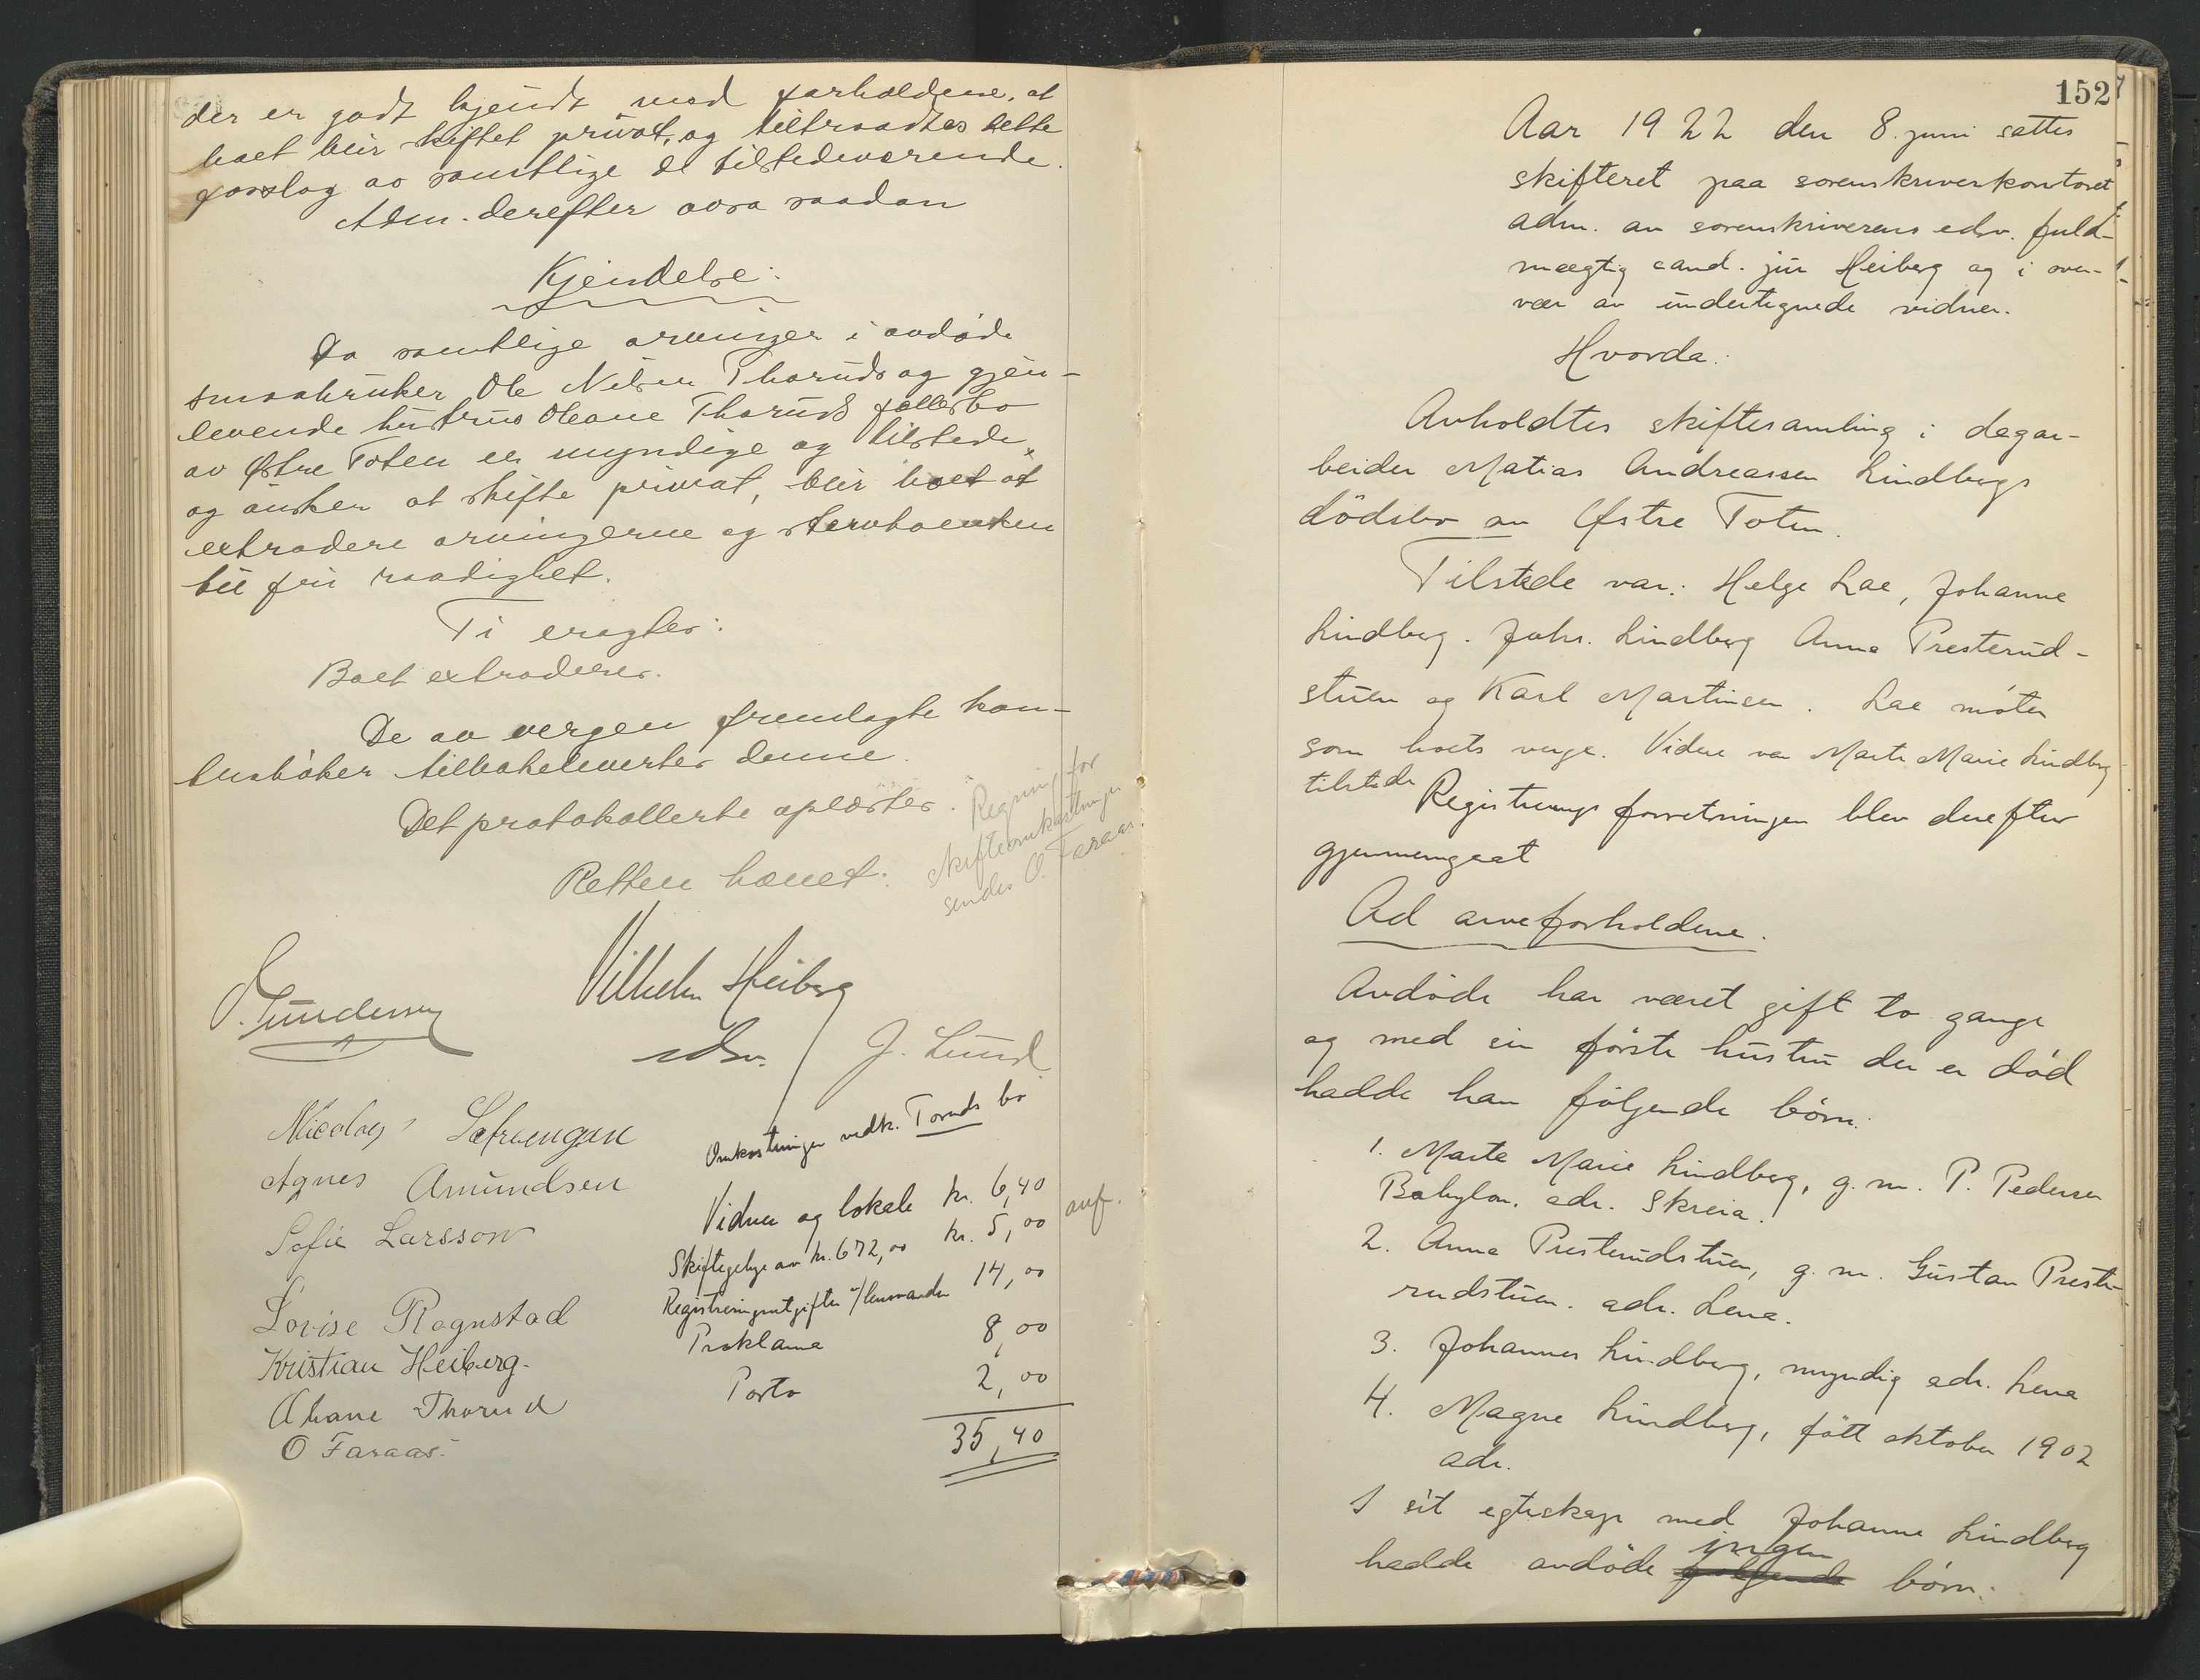 der er godt kjendt med forholdene, at
boet blir skiftet privat, og tiltraadtes dette
forslag av samtlige de tilstedeværende.
Adm. derefter avsa saadan
Kjendelse:
Da samtlige arvinger i avdøde
smaabruker Ole Nilsen Thoruds og gjen-
levende hustrus Oleane Thoruds fællesbo
av Østre Toten er myndige og tilstede,
og ønsker at skifte privat, blir boet at
extradere arvingerne og stervboenken
til fri raadighet.
Ti eragtes:
Boet extraderes.
De av vergen fremlagte kon-
tusbøker tilbakelevertes denne.
Det protokollerte oplæstes.
Regning for
skifteomkostninger
sendes O. Faraas.
Retten hævet.
Vilhelm Heiberg
edsv.
J. Lund
Nicolay
Agnes Amundsen
Sofie Larsson
Lovise Rognstad
Kristian Heiberg.
Thorud
O Faraas.
Omkostninger vedk. Toruds bo
Vidner og lokale kr. 6,40
Skiftegebyr av kr. 672,00 kr. 5,00
Registreringsutgifter t/lensmanden 14,00
Proklama 8,00
Porto 2,00
35,40
152
Aar 1922 den 8. juni sattes
skifteret paa sorenskriverkontoret
adm. av sorenskriverens edsv. fuld-
mægtig cand. jur Heiberg og i over-
vær av undertegnede vidner.
Hvorda:
Avholdtes skiftesamling i dagar-
beider Matias Andreassen Lindbergs
dödsbo av Østre Toten.
Tilstede var: Helge Lae, Johanne
Lindberg. Johs. Lindberg Anna Presterud-
stuen og Karl Martinsen. Lae möter
som boets verge. Videre var Marte Marie Lindberg
tilstede
Registreringsforretningen blev derefter
gjennemgaat
Ad arveforholdene.
Avdöde har været gift to gange
og med sin förste hustru der er död
hadde han fölgende börn:
1. Marte Marie Lindberg, g. m. P. Pedersen
Babylon. adr. Skreia.
2. Anna Presterudstuen, g. m. Gustav Preste-
rudstuen. adr. Lena.
3. Johannes Lindberg, myndig adr. Lena
4. Magne Lindberg, fött oktober 1902
adr.
I sit egteskap med Johanne Lindberg
hadde avdöde fölgende ingen börn.